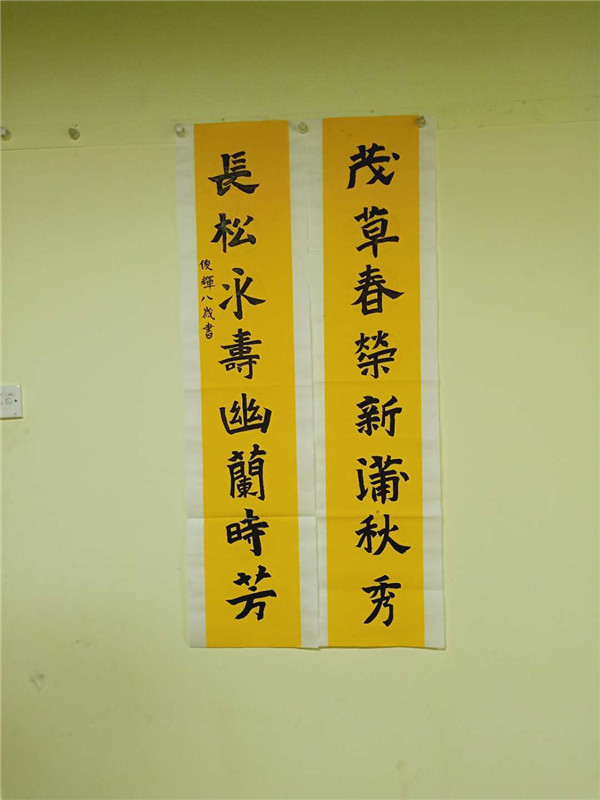 茂草春榮新蒲秋秀
長松永壽幽蘭時芳
俊輝八歲書